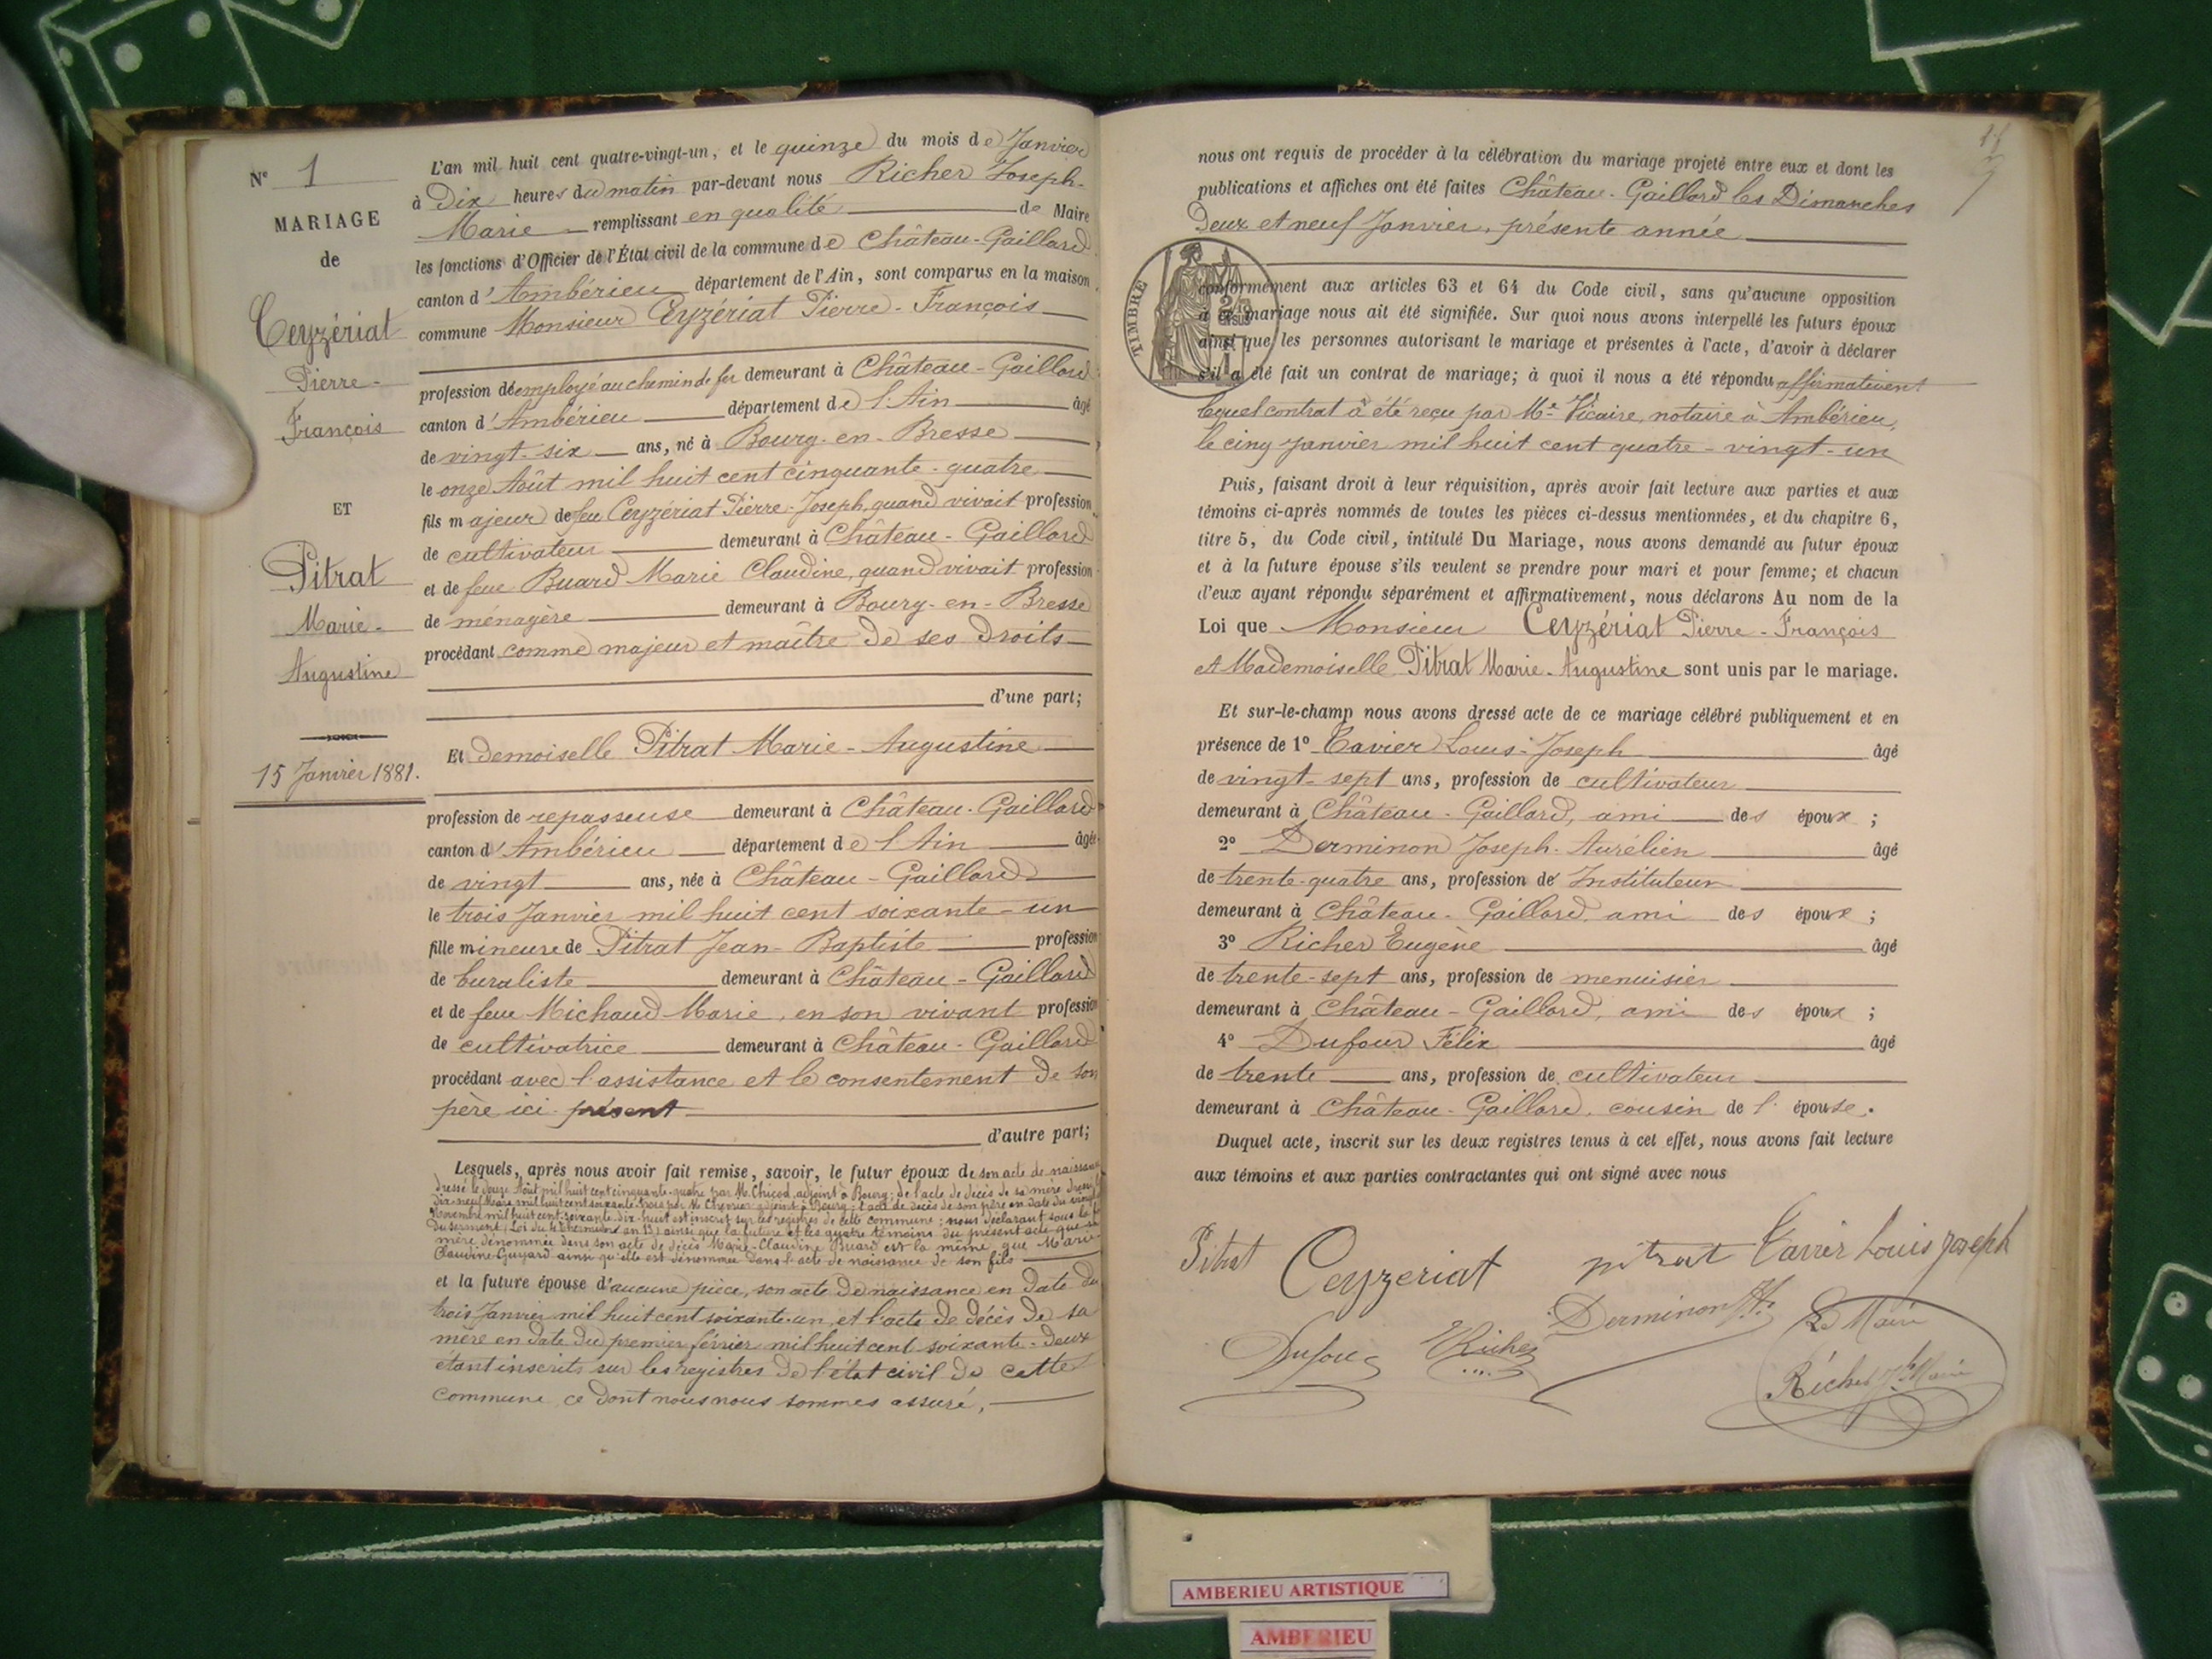 Nº 1
MARIAGE
de
Ceyzériat
Pierre-
François
ET
Pitrat
Marie-
Augustine
15 Janvier 1881.
L'an mil huit cent quatre-vingt-un, et le quinze du mois de Janvier
à Dix heures du matin par-devant nous Richer Joseph-
Marie remplissant en qualité de Maire
les fonctions d'Officier de l'État civil de la commune de Château-Gaillard
canton d'Ambérieu département de l'Ain, sont comparus en la maison
commune Monsieur Ceyzériat Pierre-François
profession de employé au chemin de fer demeurant à Château-Gaillard
canton d'Ambérieu département de l'Ain âgé
de vingt-six ans, né à Bourg-en-Bresse
le onze Août mil huit cent cinquante-quatre
fils majeur de feu Ceyzériat Pierre-Joseph, quand vivait profession
de cultivateur demeurant à Château-Gaillard
et de feue Buard Marie Claudine, quand vivait profession
de ménagère demeurant à Bourg-en-Bresse
procédant comme majeur et maître de ses droits
d'une part;
Et Demoiselle Pitrat Marie-Augustine
profession de repasseuse demeurant à Château-Gaillard
canton d'Ambérieu département de l'Ain âgée
de vingt ans, née à Château-Gaillard
le trois Janvier mil huit cent soixante-un
fille mineure de Pitrat Jean-Baptiste profession
de buraliste demeurant à Château-Gaillard
et de feue Michaud Marie, en son vivant profession
de cultivatrice demeurant à Château-Gaillard
procédant avec l'assistance et le consentement de son
père ici présent
d'autre part;
Lesquels, après nous avoir fait remise, savoir, le futur époux de son acte de naissance
dressé le douze Août mil huit cent cinquante-quatre par M. Chicod, adjoint à Bourg; de l'acte de décès de sa mère dressé le
dix-neuf Mars mil huit cent soixante-trois par M. Chernier adjoint à Bourg; l'acte de décès de son père en date du vingt
Novembre mil huit cent soixante-dix-huit est inscrit sur les registres de cette commune; nous déclarant sous la foi
du serment (Loi du 4 thermidor an 13) ainsi que la future et les quatre témoins du présent acte que sa
mère dénommée dans son acte de décès Marie-Claudine Buard est la même que Marie-
Claudine Guyard ainsi qu'elle est dénommée dans l'acte de naissance de son fils
et la future épouse d'aucune pièce, son acte de naissance en date du
trois Janvier mil huit cent soixante-un et l'acte de décès de sa
mère en date du premier février mil huit cent soixante-deux
étant inscrits sur les registres de l'état civil de cette
commune, ce dont nous nous sommes assuré,
nous ont requis de procéder à la célébration du mariage projeté entre eux et dont les
publications et affiches ont été faites Château-Gaillard les Dimanches
Deux et neuf Janvier, présente année
TIMBRE
conformément aux articles 63 et 64 du Code civil, sans qu'aucune opposition
à ce mariage nous ait été signifiée. Sur quoi nous avons interpellé les futurs époux
ainsi que les personnes autorisant le mariage et présentes à l'acte, d'avoir à déclarer
s'il a été fait un contrat de mariage; à quoi il nous a été répondu affirmativement
lequel contrat a été reçu par Me Vicaire, notaire à Ambérieu,
le cinq Janvier mil huit cent quatre-vingt-un
Puis, faisant droit à leur réquisition, après avoir fait lecture aux parties et aux
témoins ci-après nommés de toutes les pièces ci-dessus mentionnées, et du chapitre 6,
titre 5, du Code civil, intitulé Du Mariage, nous avons demandé au futur époux
et à la future épouse s'ils veulent se prendre pour mari et pour femme; et chacun
d'eux ayant répondu séparément et affirmativement, nous déclarons Au nom de la
Loi que Monsieur Ceyzériat Pierre-François
et Mademoiselle Pitrat Marie-Augustine sont unis par le mariage.
Et sur-le-champ nous avons dressé acte de ce mariage célébré publiquement et en
présence de 1º Tavier Louis-Joseph âgé
de vingt-sept ans, profession de cultivateur
demeurant à Château-Gaillard, ami des époux;
2º Derminon Joseph-Aurélien âgé
de trente-quatre ans, profession de Instituteur
demeurant à Château-Gaillard, ami des époux;
3º Richer Eugène âgé
de trente-sept ans, profession de menuisier
demeurant à Château-Gaillard, ami des époux;
4º Dufour Félix âgé
de trente ans, profession de cultivateur
demeurant à Château-Gaillard, cousin de l'épouse.
Duquel acte, inscrit sur les deux registres tenus à cet effet, nous avons fait lecture
aux témoins et aux parties contractantes qui ont signé avec nous
Pitrat Ceyzeriat pitrat Tavier Louis Joseph
Derminon Le Maire
Dufour E Richer Richer Jh Marie
AMBERIEU ARTISTIQUE
AMBERIEU